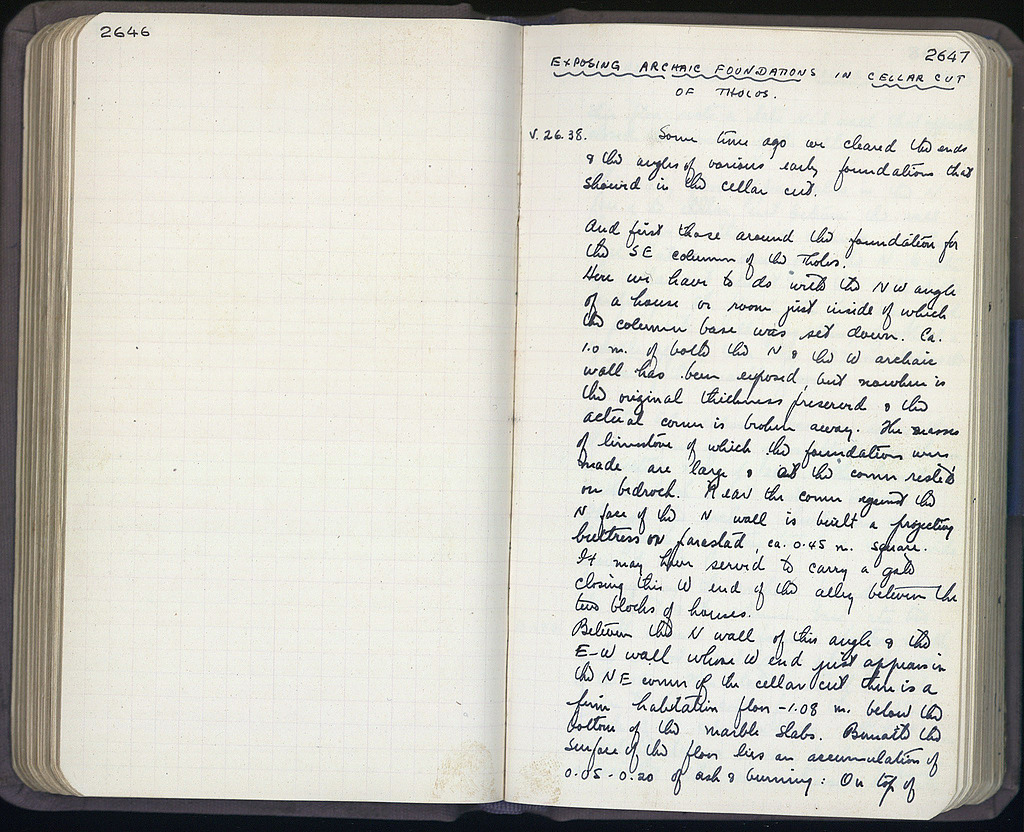 2646
2647
EXPOSING ARCHAIC FOUNDATIONS IN CELLAR CUT
OF THOLOS.
V. 26.38. Some time ago we cleared the ends
& the angles of various early foundations that
showed in the cellar cut.
And first those around the foundation for
the SE column of the Tholos.
Here we have to do with the NW angle
of a house or room just inside of which
the column base was set down. Ca.
1.0 m. of both the N & the W archaic
wall has been exposed, but nowhere is
the original thickness preserved & the
actual corner is broken away. The masses
of limestone of which the foundations were
made are large & at the corner rested
on bedrock. Near the corner against the
N face of the N wall is built a projecting
buttress or parastad, ca. 0.45 m. square.
It may have served to carry a gate
closing this W end of the alley between the
two blocks of houses.
Between the N wall of this angle & the
E-W wall whose W end just appears in
the NE corner of the cellar cut there is a
firm habitation floor -1.08 m. below the
bottom of the marble slabs. Beneath the
surface of the floor lies an accumulation of
0.05-0.20 of ash & burning: On top of